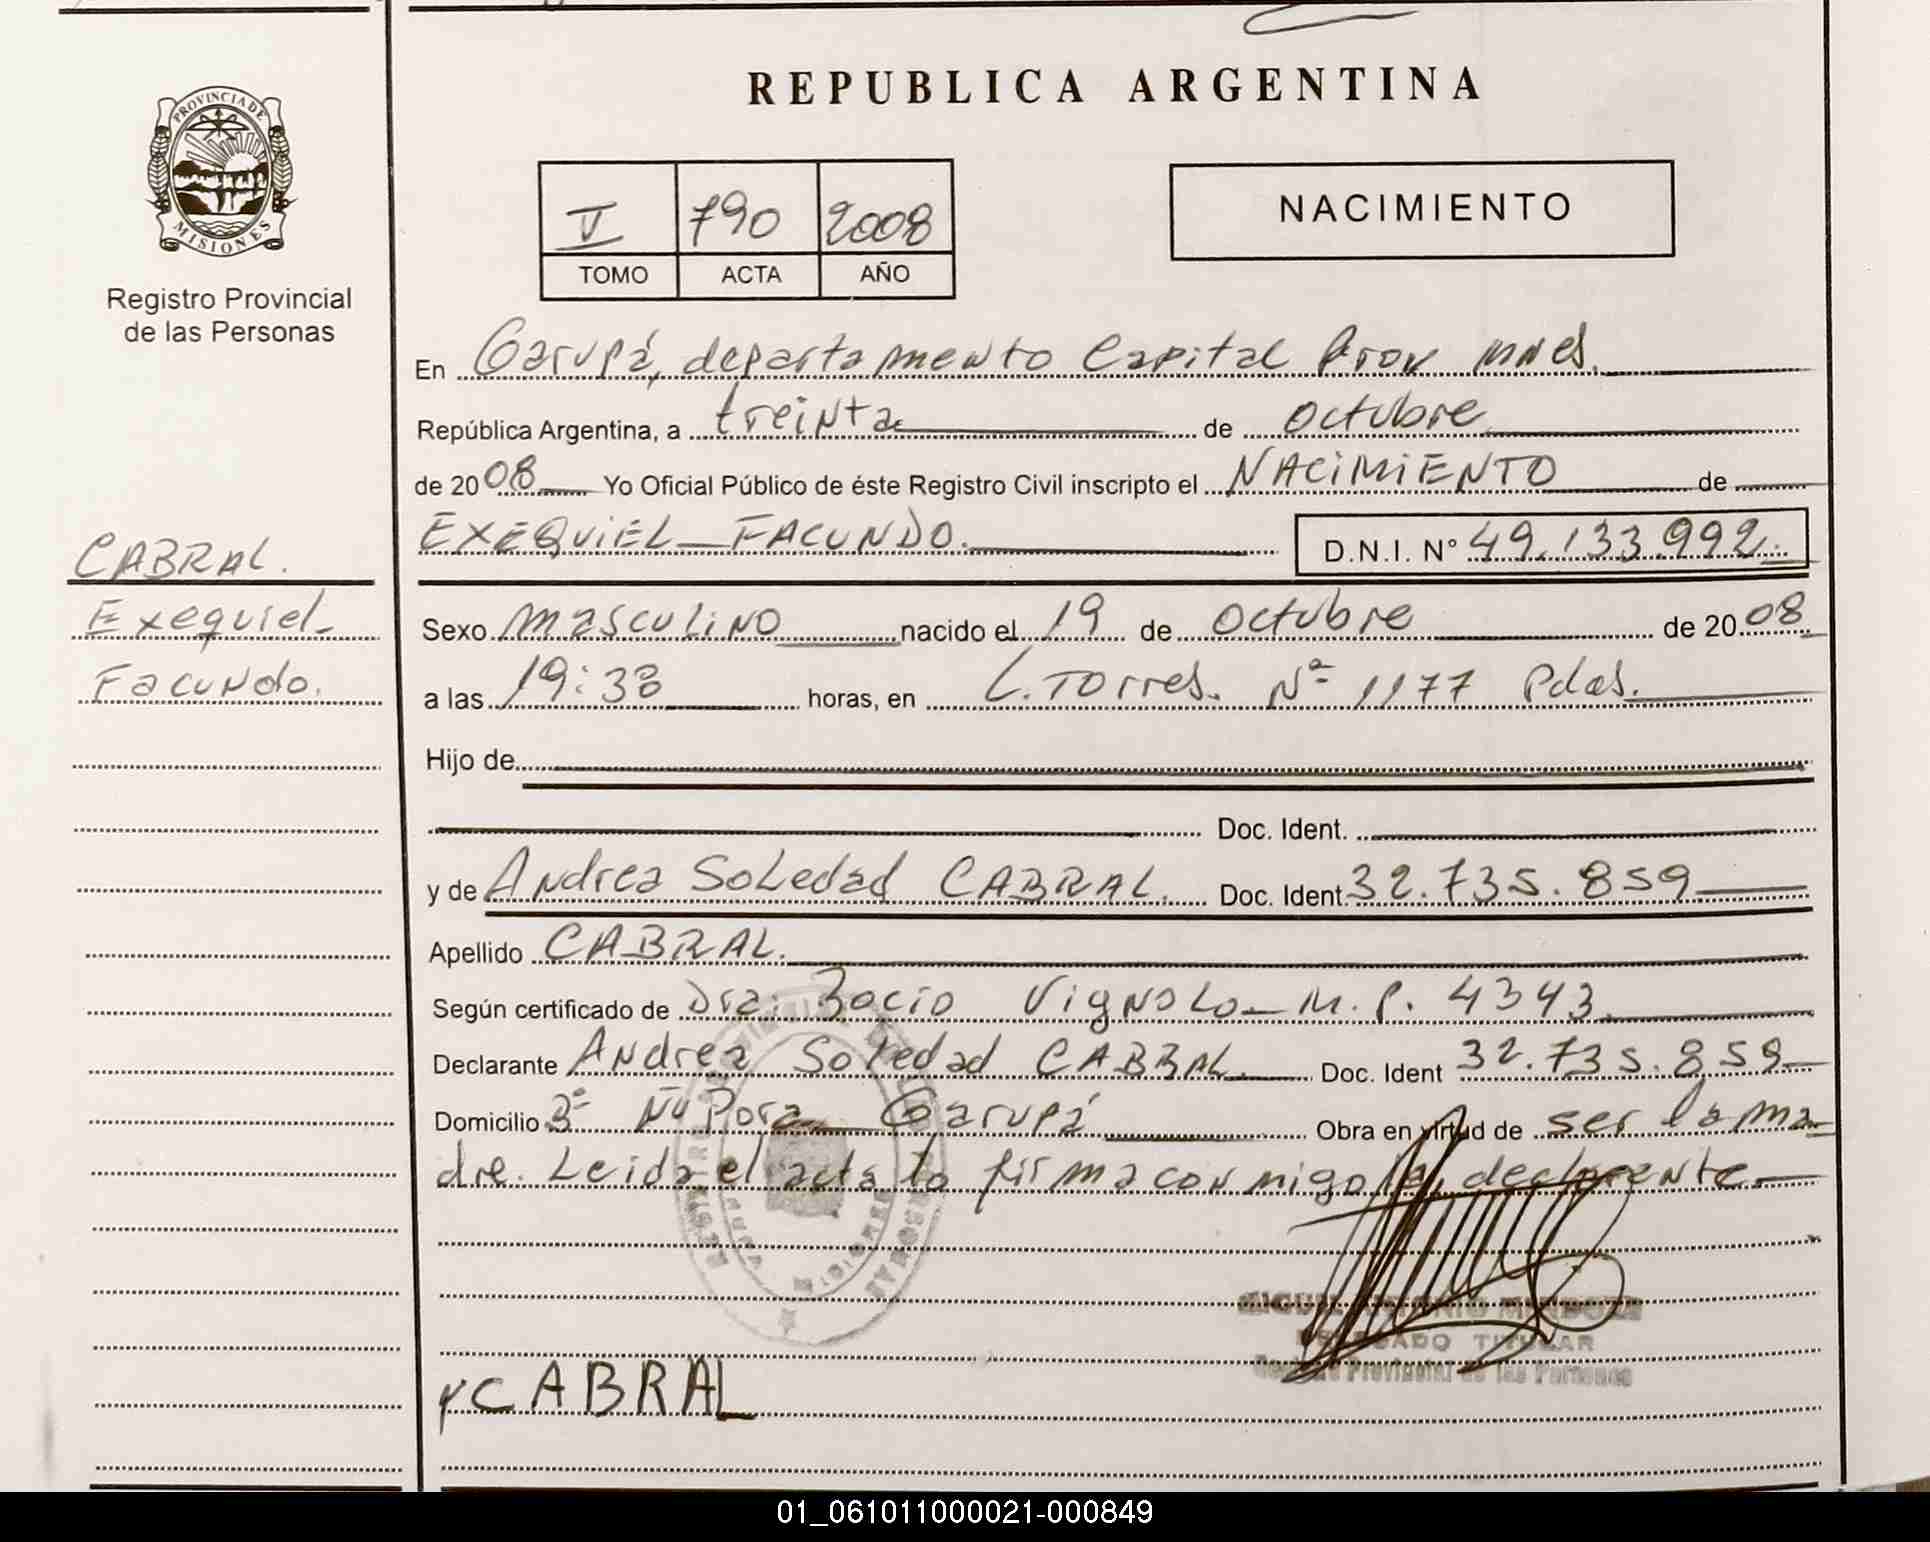 REPUBLICA ARGENTINA
PROVINCIA DE
MISIONES
Registro Provincial
de las Personas
V 790 2008
TOMO ACTA AÑO
NACIMIENTO
En Garupá, departamento Capital Prov mnes.
República Argentina, a treinta de octubre
de 2008 Yo Oficial Público de éste Registro Civil inscripto el NACIMIENTO de
EXEQUIEL FACUNDO. D.N.I. N° 49.133.992.
CABRAL.
Exequiel
Facundo.
Sexo masculino nacido el 19 de octubre de 2008
a las 19:38 horas, en L. Torres. Nº 1177 Pdas.
Hijo de
Doc. Ident.
y de Andrea Soledad CABRAL. Doc. Ident. 32.735.859
Apellido CABRAL.
Según certificado de Dra. Rocio Vignolo M.P. 4343.
Declarante Andrea Soledad CABRAL. Doc. Ident 32.735.859
Domicilio Bº Ñu Pora Garupá Obra en virtud de ser la ma
dre. Leida el acta la firma conmigo la declarente.
MIGUEL ANTONIO
DELEGADO TITULAR
Registro Provincial de las Personas
CABRAL
01_061011000021-000849